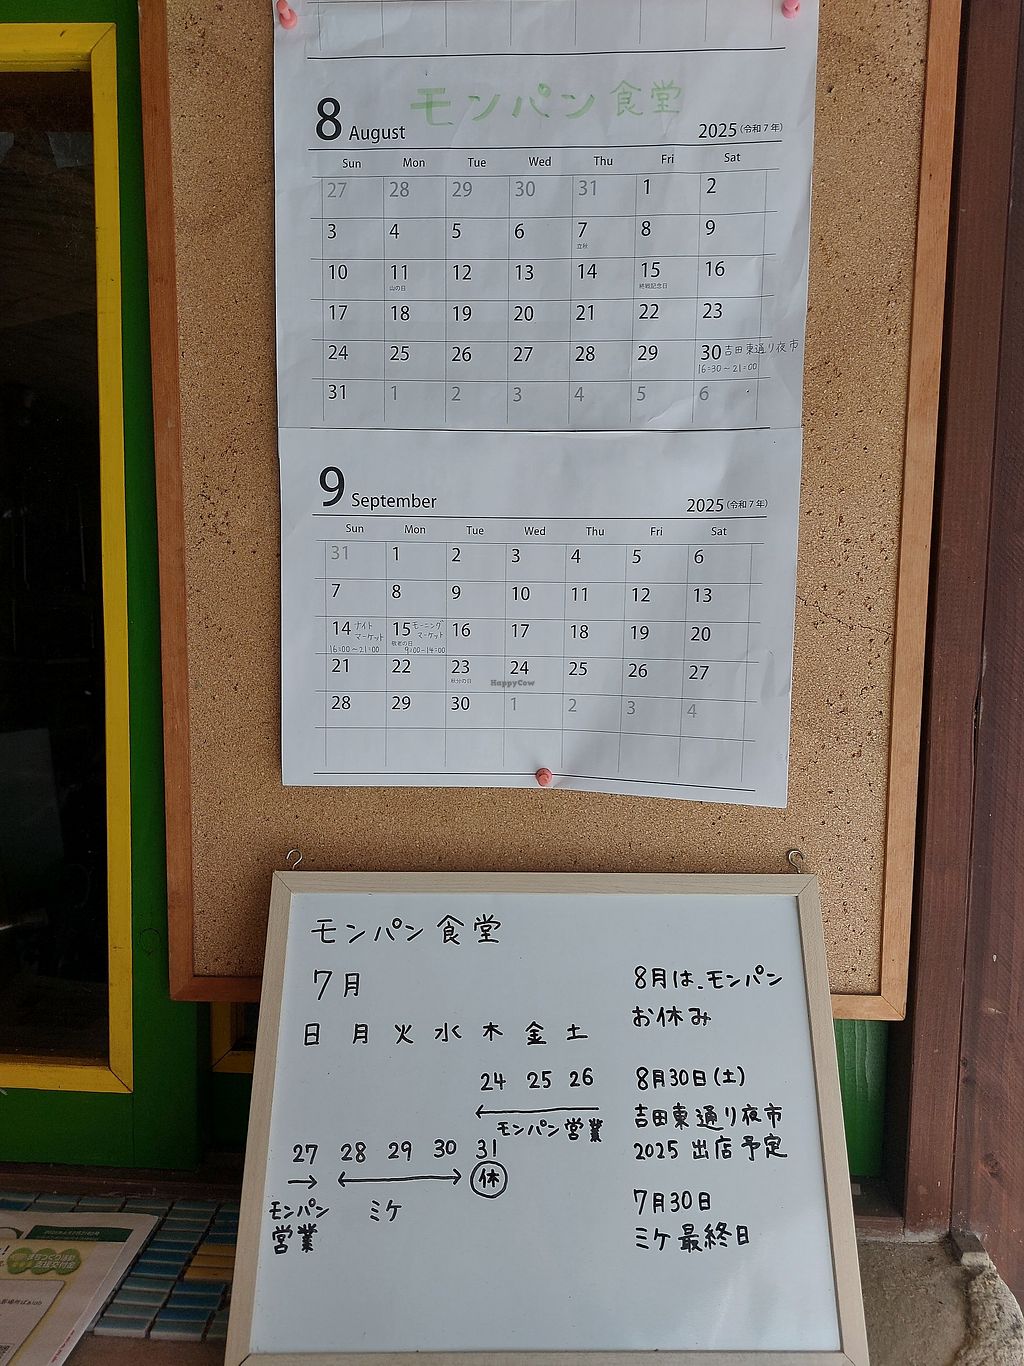 モンパン食堂
8 August 2025 (令和7年)
Sun Mon Tue Wed Thu Fri Sat
27 28 29 30 31 1 2
3 4 5 6 7 8 9
立秋
10 11 12 13 14 15 16
山の日 終戦記念日
17 18 19 20 21 22 23
24 25 26 27 28 29 30 吉田東通り夜市
16:30~21:00
31 1 2 3 4 5 6
9 September 2025 (令和7年)
Sun Mon Tue Wed Thu Fri Sat
31 1 2 3 4 5 6
7 8 9 10 11 12 13
14 ナイトマーケット 15 モーニングマーケット 16 17 18 19 20
敬老の日
16:00~21:00 9:00-14:00
21 22 23 24 25 26 27
秋分の日
HappyCow
28 29 30 1 2 3 4
モンパン食堂
7月
日 月 火 水 木 金 土
24 25 26
モンパン営業
27 28 29 30 31
休
モンパン ミケ
営業
8月は、モンパン
お休み
8月30日(土)
吉田東通り夜市
2025 出店予定
7月30日
ミケ最終日
直接交付金